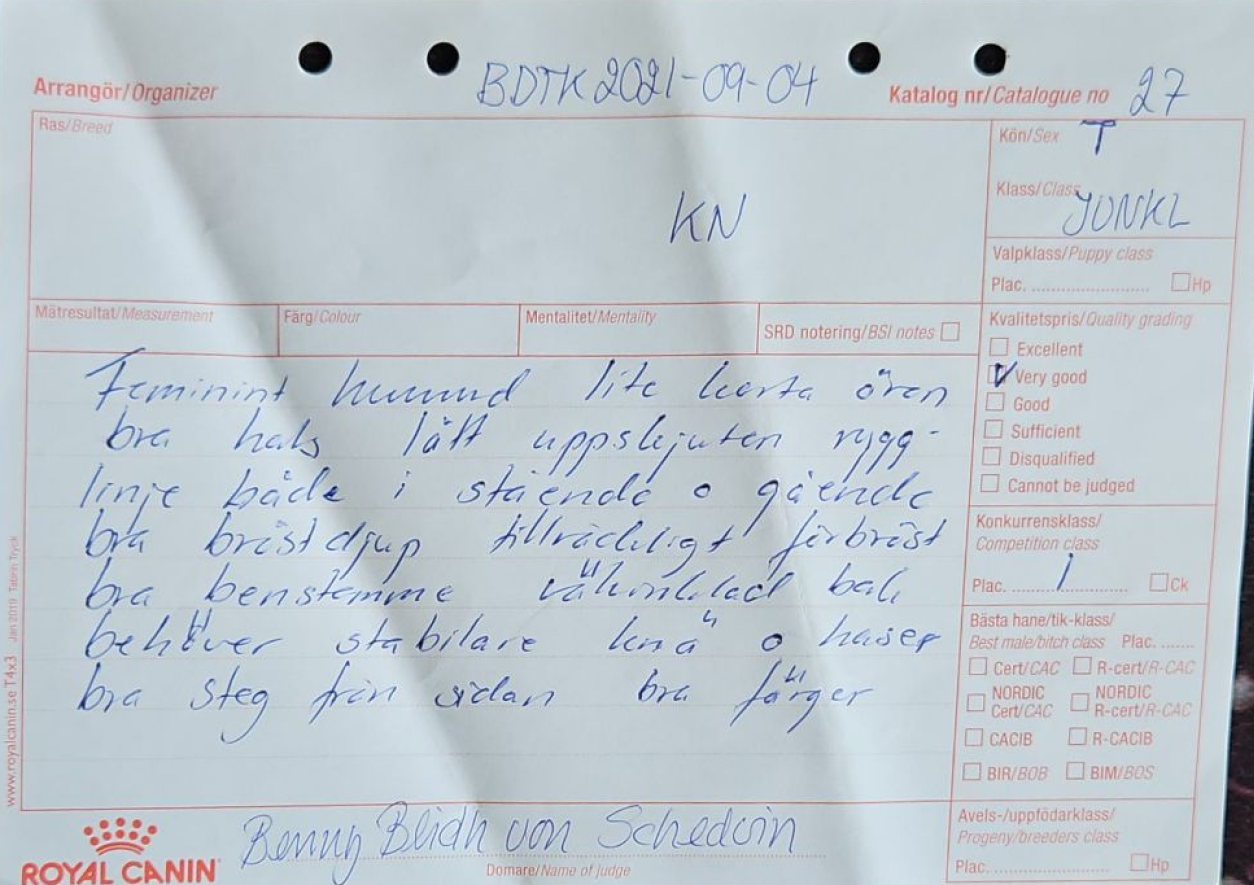 Arrangör/Organizer BDTK 2021-09-04 Katalog nr/Catalogue no 27
Ras/Breed
Kön/Sex T
KN
Klass/Class JUNKL
Valpklass/Puppy class
Plac. Hp
Mätresultat/Measurement Färg/Colour Mentalitet/Mentality SRD notering/BSI notes
Kvalitetspris/Quality grading
Excellent
Very good
Good
Sufficient
Disqualified
Cannot be judged
Feminint huvud lite korta ören
bra hals lätt uppskjuten rygg-
linje både i stående o gående
bra bröstdjup tillräckligt förbröst
bra benstomme välvinklad bak
behöver stabilare knä o haser
bra steg från sidan bra färger
Konkurrensklass/
Competition class
Plac. 1 Ck
Bästa hane/tik-klass/
Best male/bitch class Plac.
Cert/CAC R-cert/R-CAC
NORDIC Cert/CAC NORDIC R-cert/R-CAC
CACIB R-CACIB
BIR/BOB BIM/BOS
Avels-/uppfödarklass/
Progeny/breeders class
Plac. Hp
www.royalcanin.se T4x3 Jan 2019 Tabrin Tryck
ROYAL CANIN
Benny Blidh von Schedvin
Domare/Name of judge